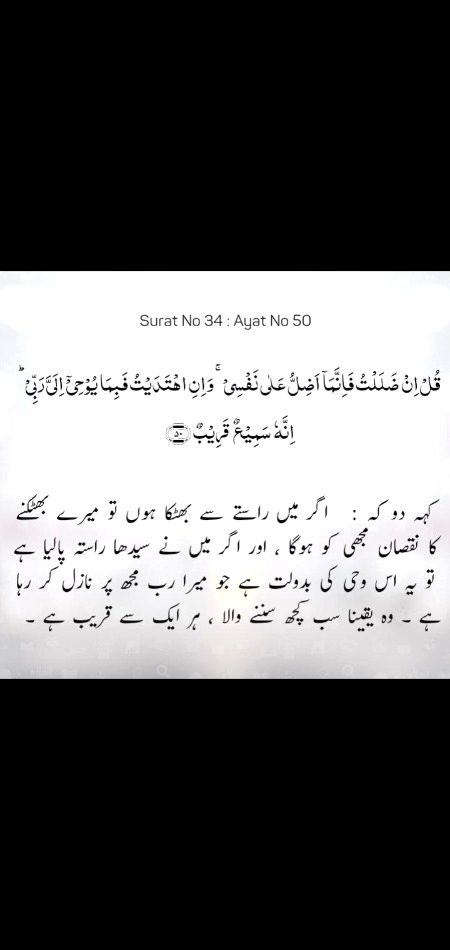 Surat No 34 : Ayat No 50
قُلۡ اِنۡ ضَلَلۡتُ فَاِنَّمَاۤ اَضِلُّ عَلٰی نَفۡسِیۡ ۚ وَ اِنِ اہۡتَدَیۡتُ فَبِمَا یُوۡحِیۡۤ اِلَیَّ رَبِّیۡ ؕ
اِنَّہٗ سَمِیۡعٌ قَرِیۡبٌ ﴿۵۰﴾
کہہ دو کہ : اگر میں راستے سے بھٹکا ہوں تو میرے بھٹکنے
کا نقصان مجھی کو ہوگا ، اور اگر میں نے سیدھا راستہ پالیا ہے
تو یہ اس وحی کی بدولت ہے جو میرا رب مجھ پر نازل کر رہا
ہے ۔ وہ یقینا سب کچھ سننے والا ، ہر ایک سے قریب ہے ۔